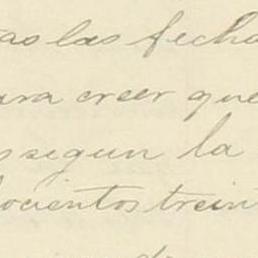 as las fecha
ara creer que
s segun la
ocientos trein
de